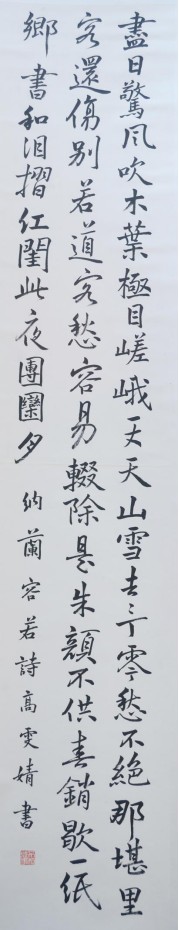 盡日驚風吹木葉極目嵯峨一丈天山雪去々丁零愁不絕那堪里
客還傷別若道客愁容易輟除是朱顏不供春銷歇一紙
鄉書和泪摺紅閨此夜團圞月 納蘭容若詩高雯婧書